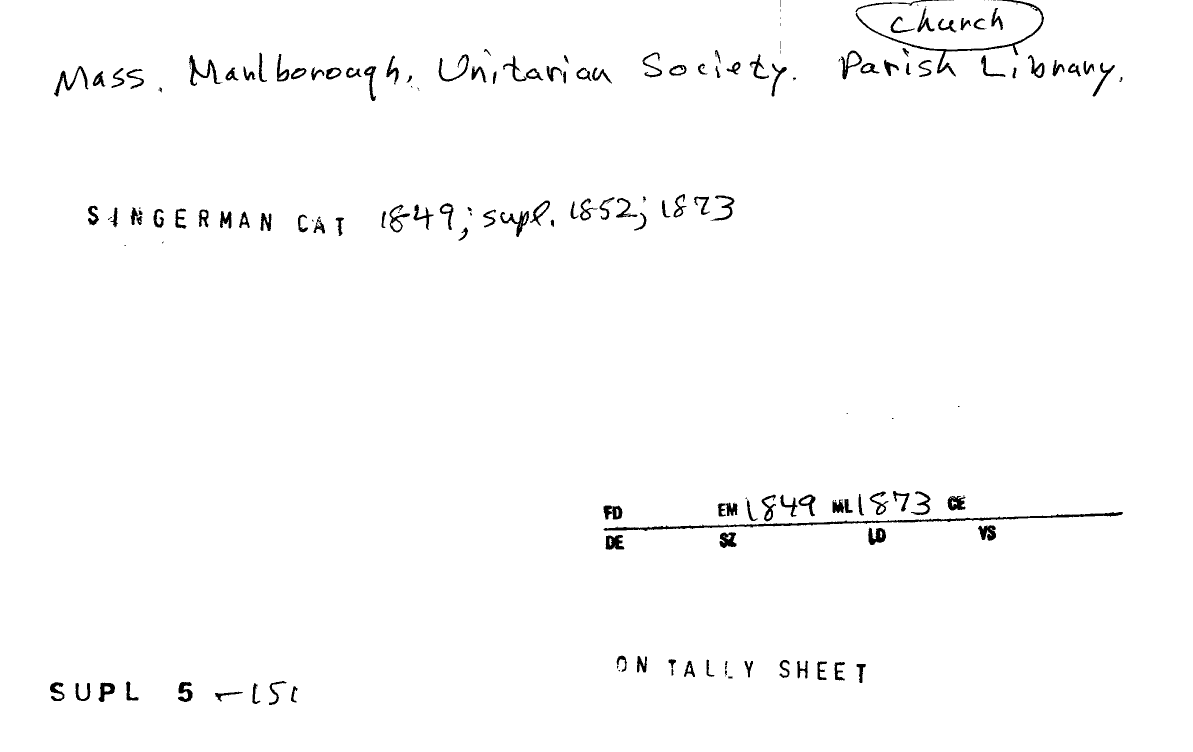 Church
Mass. Marlborough. Unitarian Society. Parish Library.
SINGERMAN CAT 1849; supl. 1852; 1873
FD EM 1849 ML 1873 CE
DE SZ LD VS
ON TALLY SHEET
SUPL 5 -151